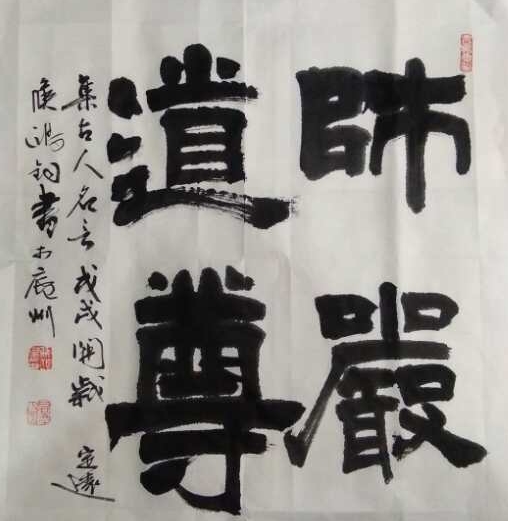 師嚴
道尊
集古人名言戊戌開歲 定遠
侯鴻鈞書於廬州